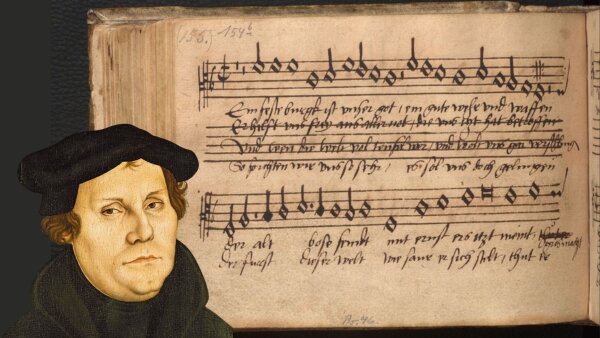 (155.) 154b
Ein feste burgk ist unser got / ein gute wehr und waffen
Er hilfft uns aus aller not / die uns hat betroffen
Und wen die welt vol teufel wer / und wolt uns gar
So furchten wir uns so sehr / es sol uns doch gelingen
der alt bose feindt mit ernst ers itzt meint
der furst dieser welt wie saur er sich stelt / thut er